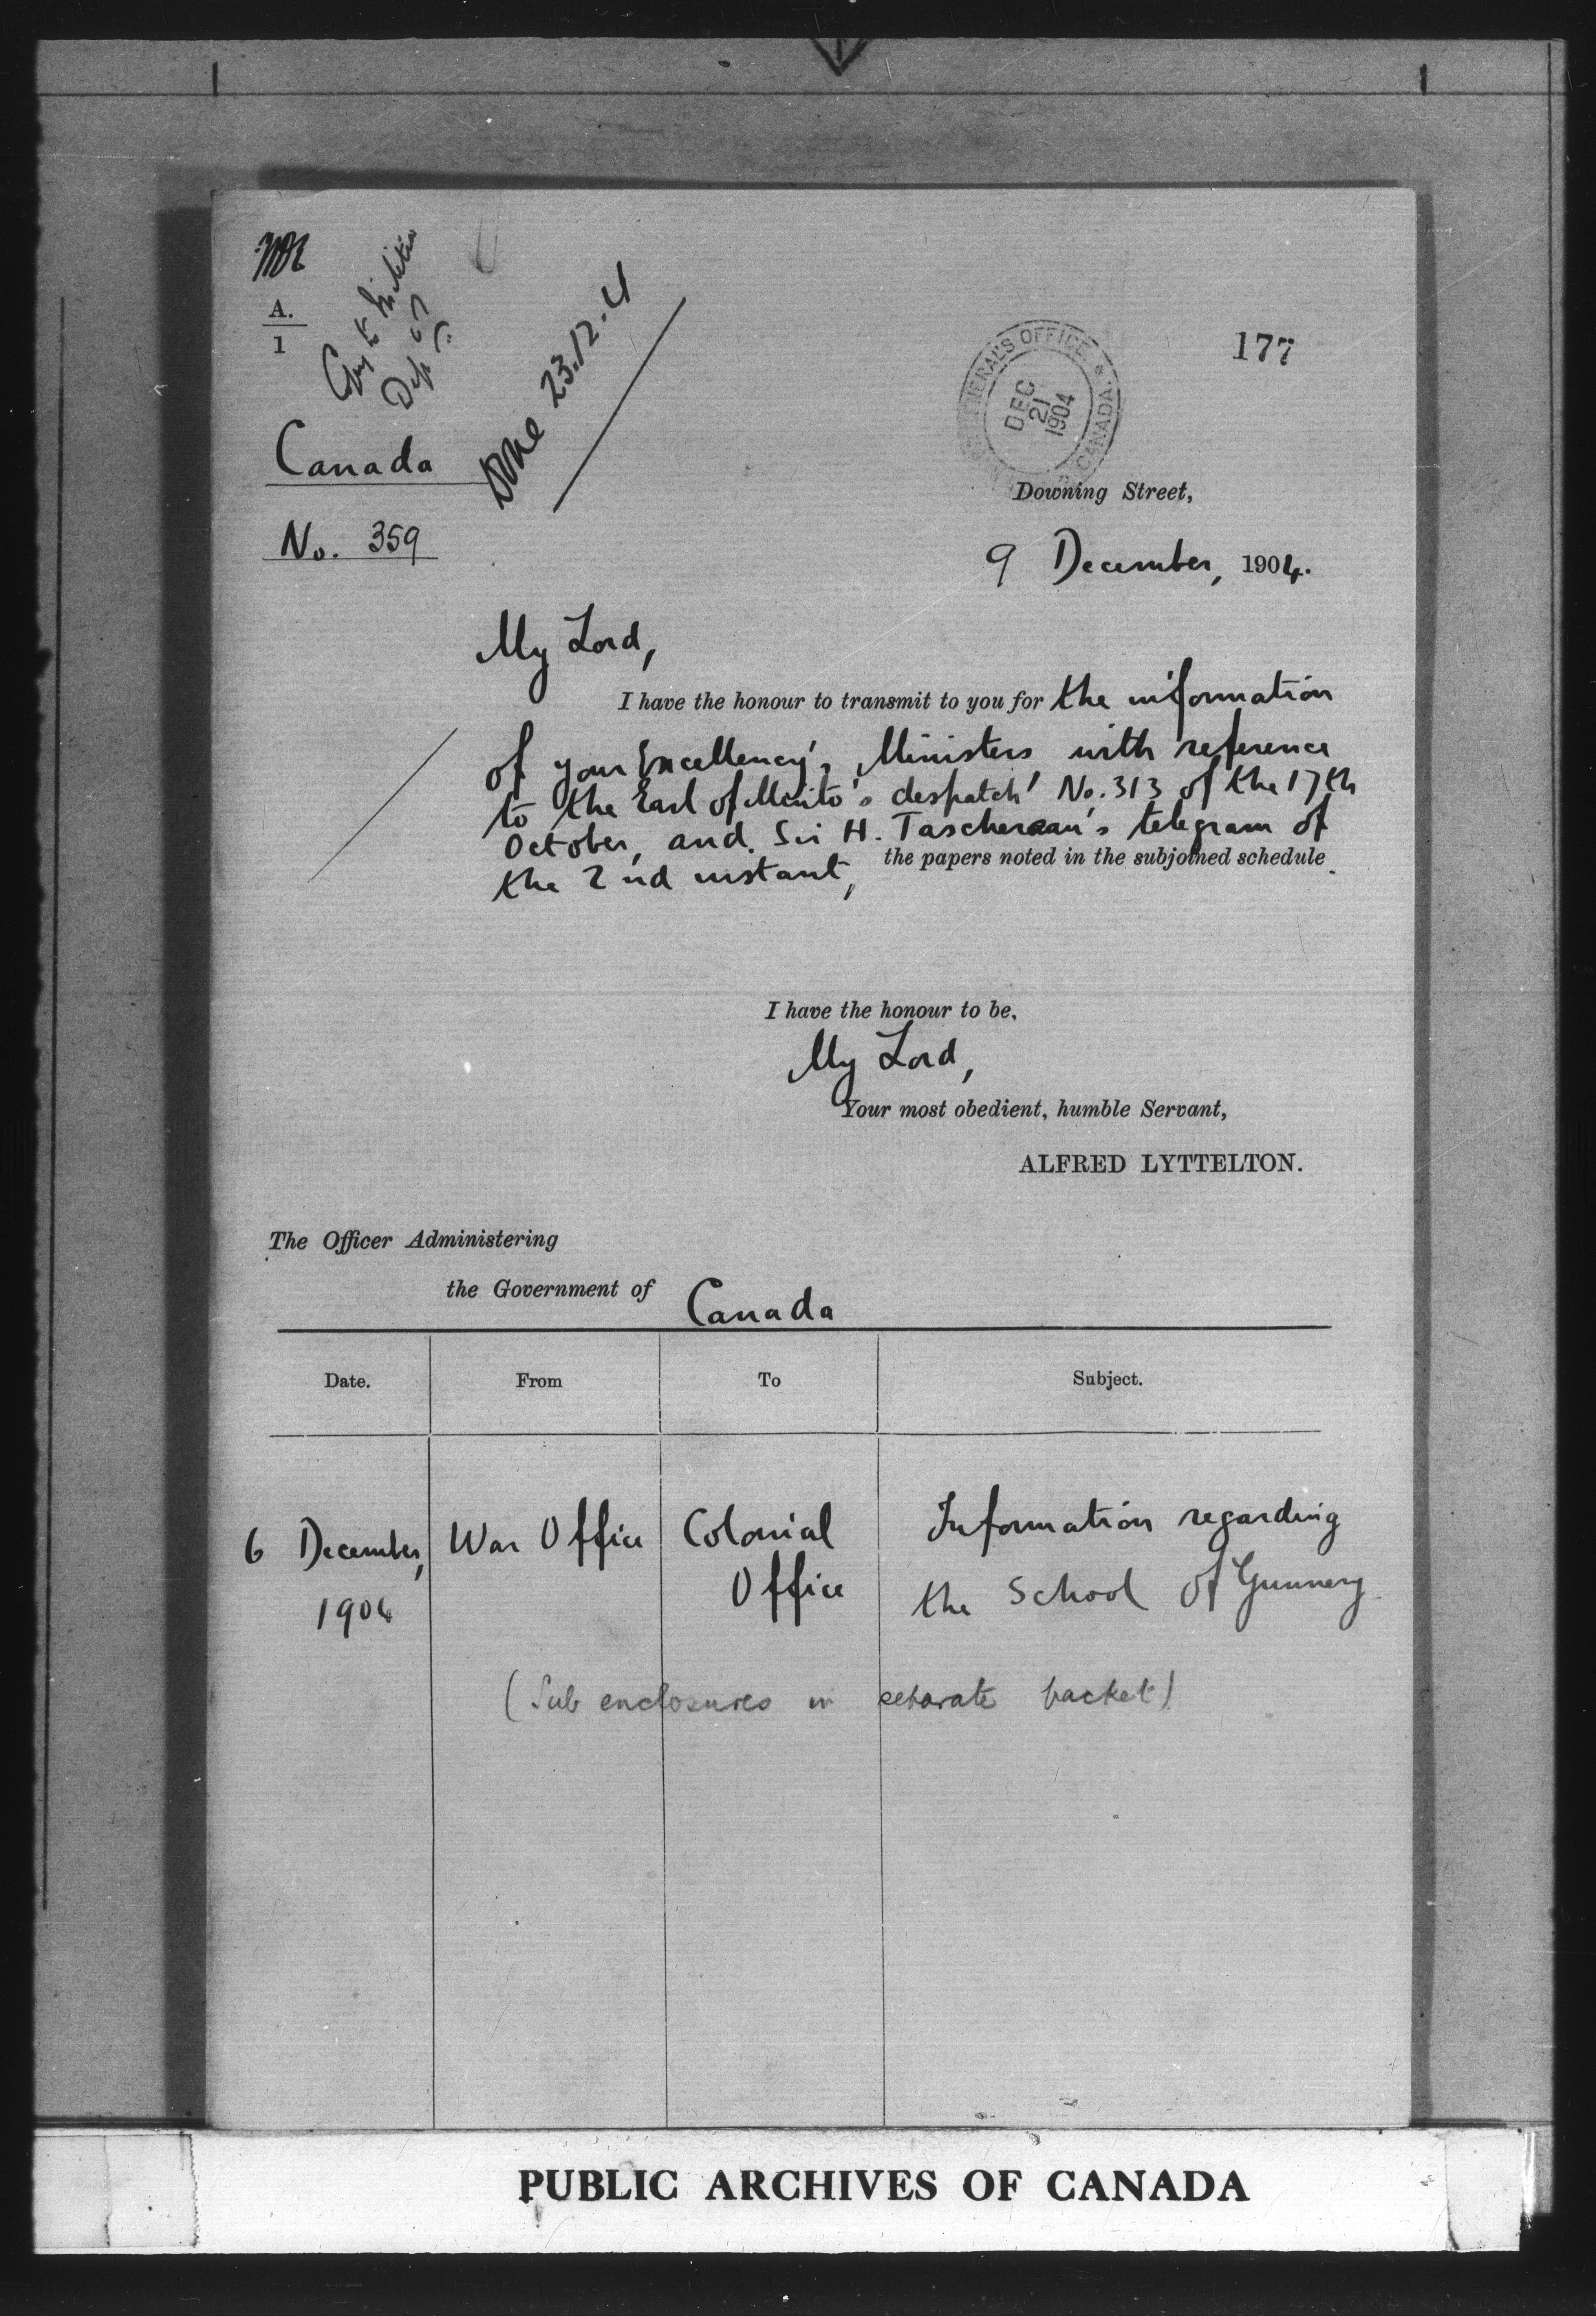 A.
1
Copy to Militia
Dept
Done 23.12.4
177
GENERAL'S OFFICE * CANADA
DEC
21
1904
Canada
No. 359
Downing Street,
9 December, 1904.
My Lord,
I have the honour to transmit to you for the information
of your Excellency's Ministers with reference
to the Earl of Minto's despatch No. 313 of the 17th
October, and Sir H. Taschereau's telegram of
the 2nd instant, the papers noted in the subjoined schedule.
I have the honour to be,
My Lord,
Your most obedient, humble Servant,
ALFRED LYTTELTON.
The Officer Administering
the Government of Canada
Date. From To Subject.
6 December, War Office Colonial Information regarding
1904 Office the School of Gunnery
(Sub enclosures in separate packet)
PUBLIC ARCHIVES OF CANADA